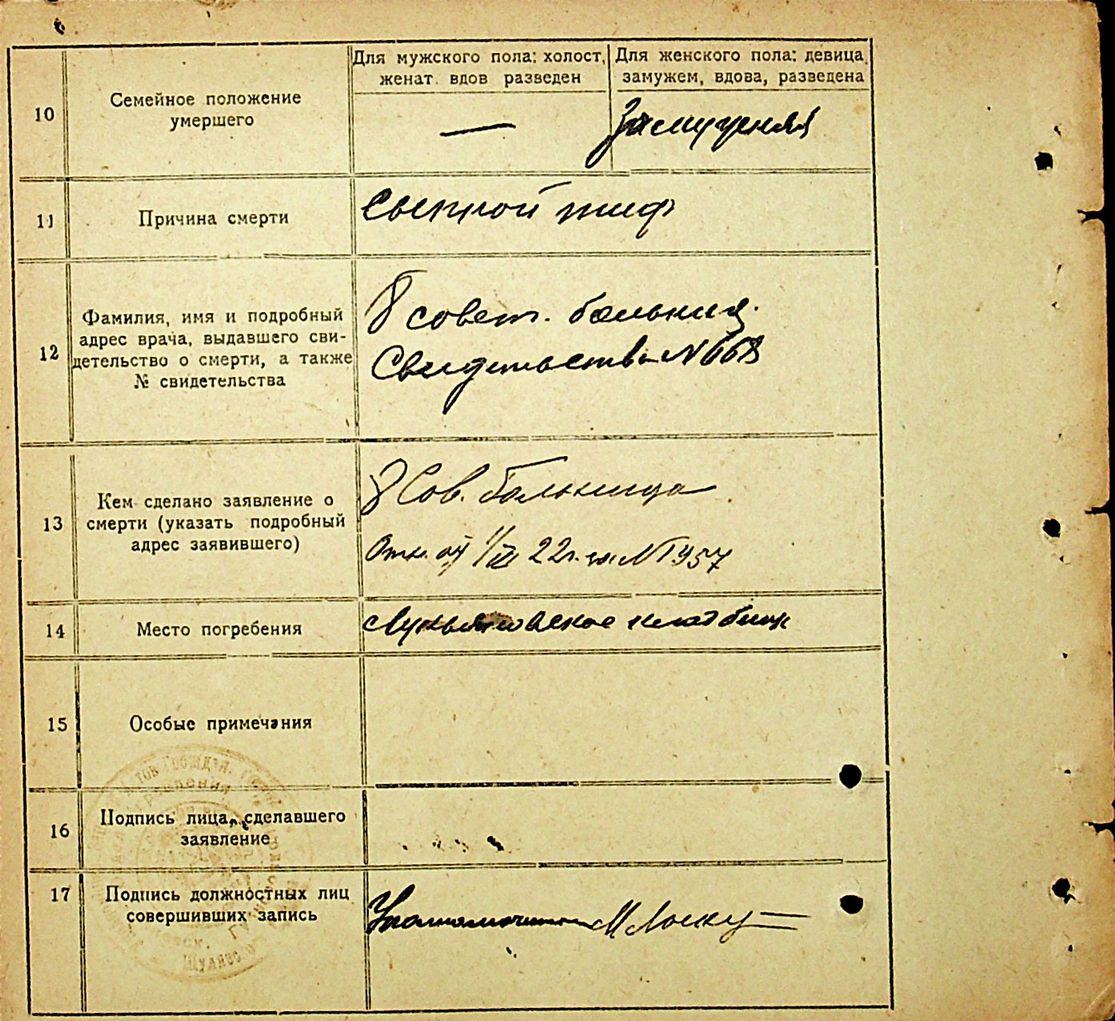 Для мужского пола: холост, женат вдов разведен
Для женского пола: девица, замужем, вдова, разведена
10
Семейное положение
умершего
—
Замужняя
11
Причина смерти
Сыпной тиф
12
Фамилия, имя и подробный
адрес врача, выдавшего сви-
детельство о смерти, а также
№ свидетельства
8 совет. больниц.
Свидетельство №668
13
Кем сделано заявление о
смерти (указать подробный
адрес заявившего)
8 Сов. больница
22г. за №1957
14
Место погребения
Лукьяновское кладбищ
15
Особые примечания
16
Подпись лица, сделавшего
заявление
17
Подпись должностных лиц
совершивших запись